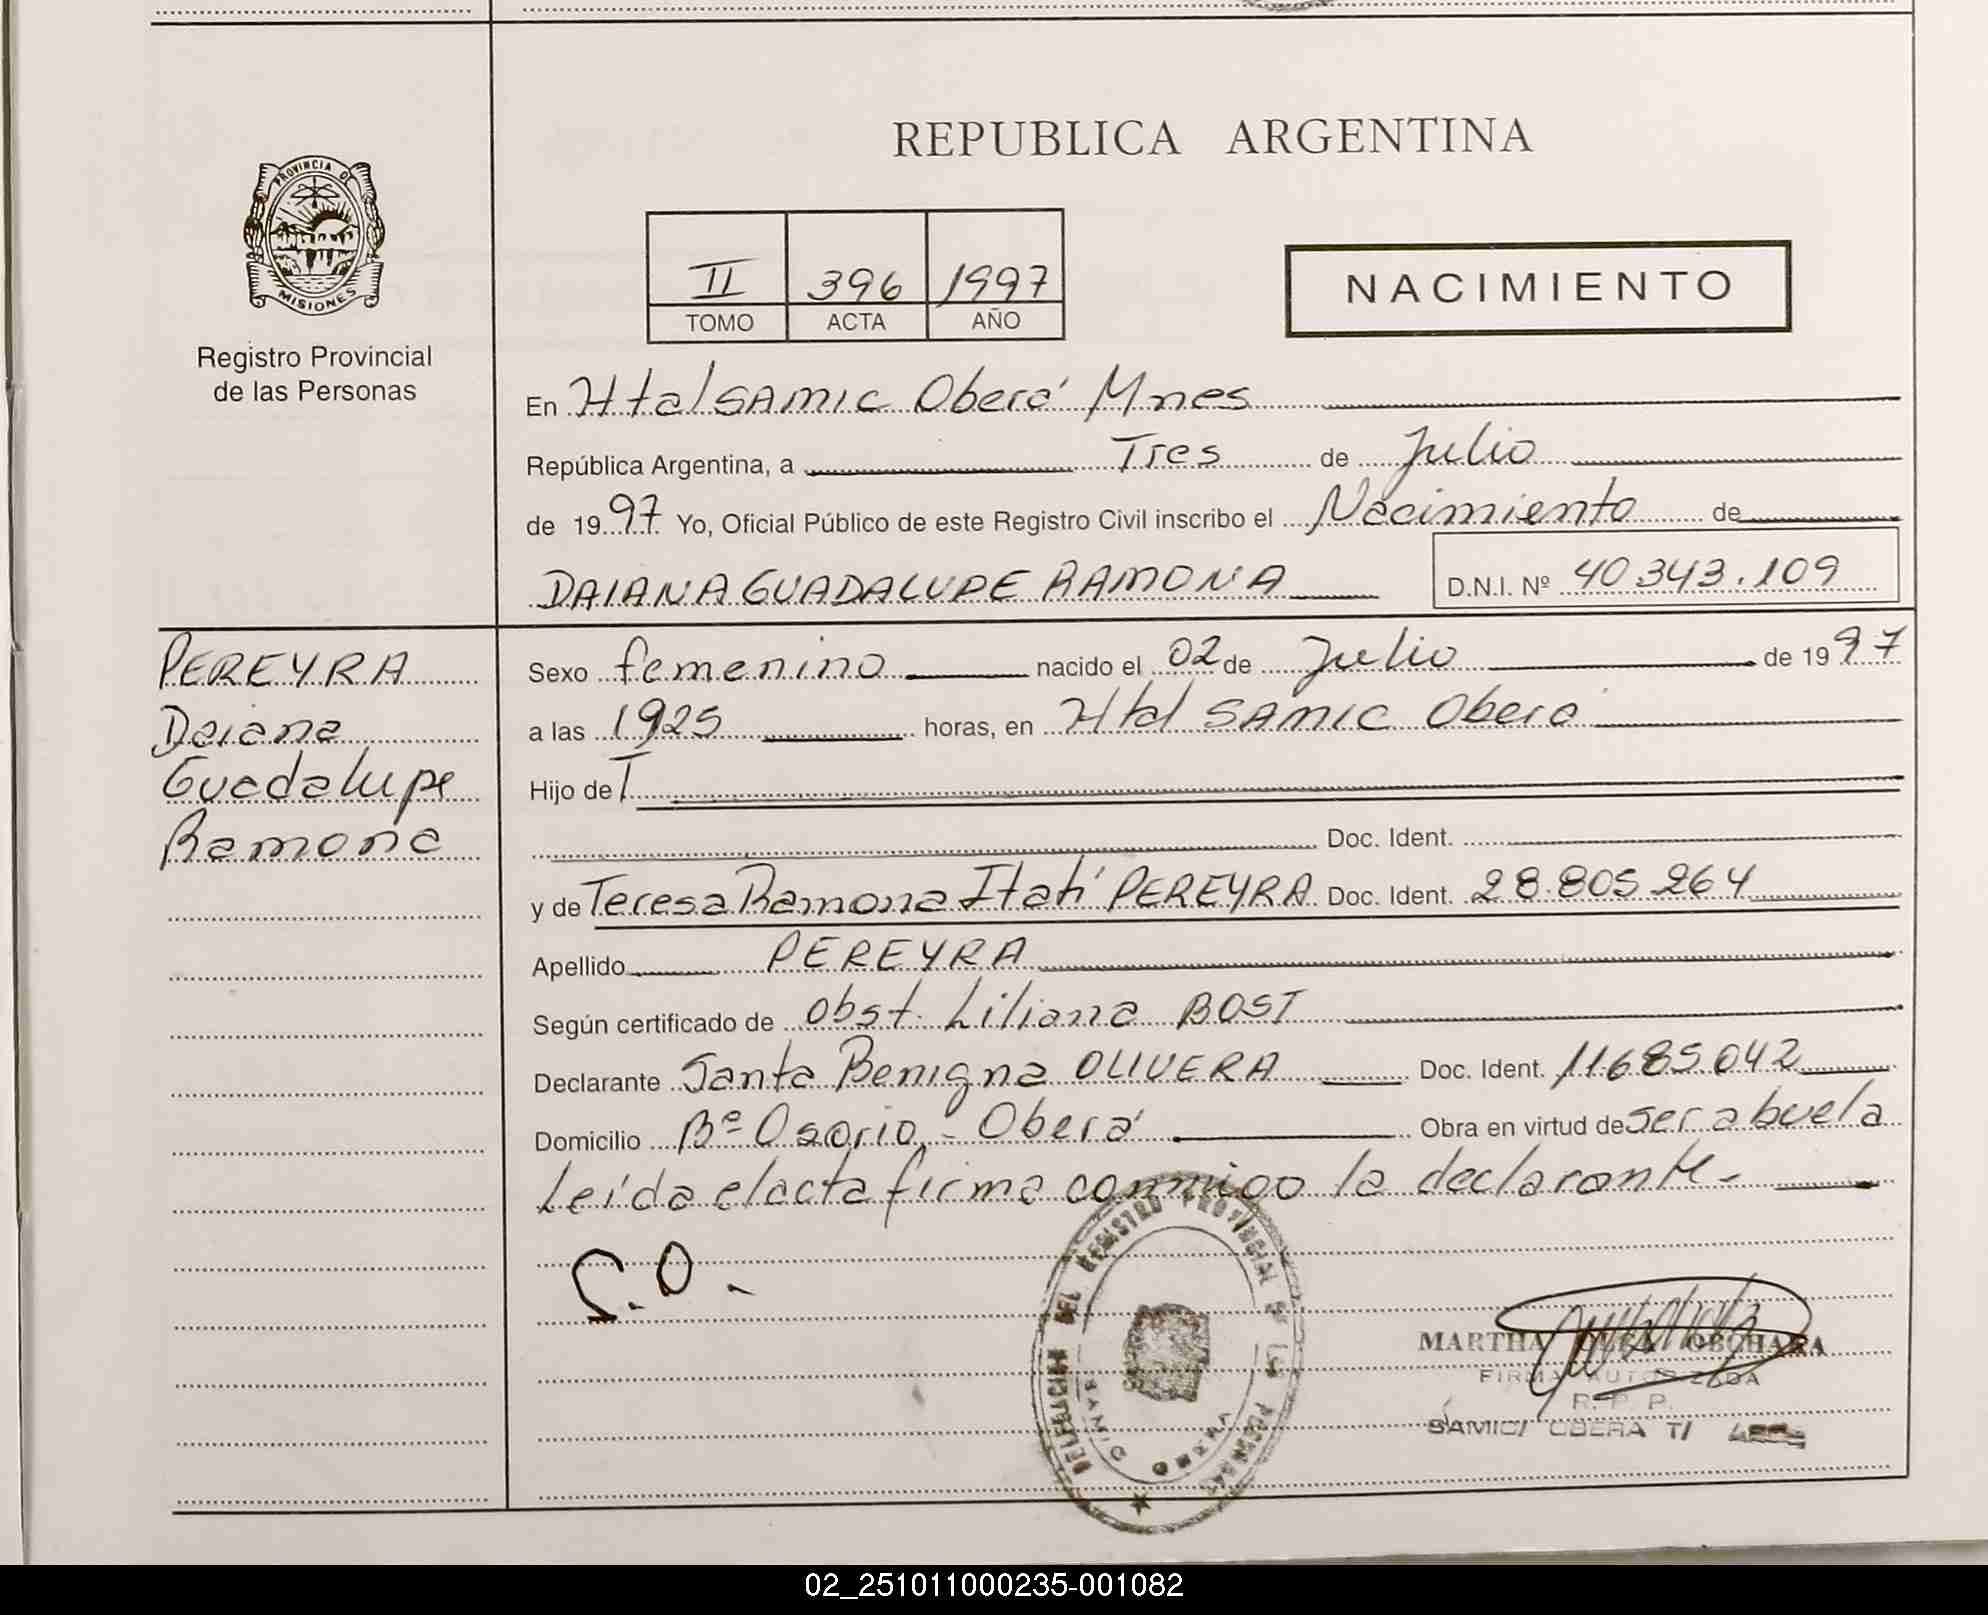 REPUBLICA ARGENTINA
PROVINCIA DE
MISIONES
Registro Provincial
de las Personas
II 396 1997
TOMO ACTA AÑO
NACIMIENTO
En Htal SAMIC Oberá Mnes
República Argentina, a Tres de Julio
de 1997 Yo, Oficial Público de este Registro Civil inscribo el Nacimiento de
DAIANA GUADALUPE RAMONA D.N.I. Nº 40 343.109
PEREYRA
Daiana
Guadalupe
Ramona
Sexo femenino nacido el 02 de Julio de 1997
a las 1925 horas, en Htal SAMIC Oberá
Hijo de
Doc. Ident.
y de Teresa Ramona Itatí PEREYRA Doc. Ident. 28.805.264
Apellido PEREYRA
Según certificado de Obst. Liliana BOST
Declarante Santa Benigna OLIVERA Doc. Ident. 11685042
Domicilio Bº Osorio - Oberá Obra en virtud de ser abuela
Leída el acta firma conmigo la declarante-
S.O.
DEL REGISTRO PROVINCIAL DE LAS PERSONAS
SAMIC
OBERA
MARTHA OLGA
FIRMA AUTORIZADA
R. P. P.
SAMIC/ OBERA T/
02_251011000235-001082